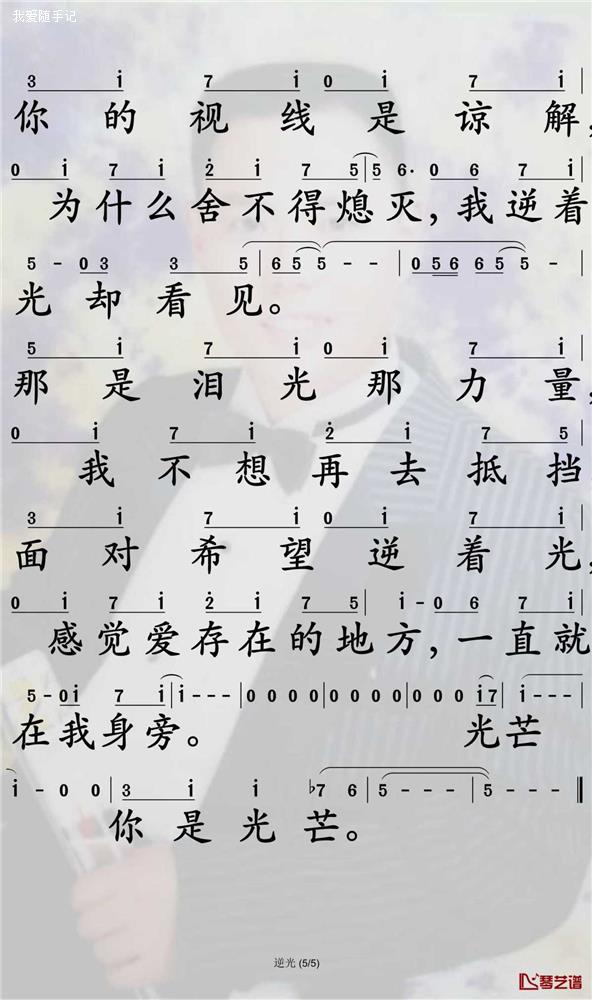 我爱随手记
3 i 7 i 0 i 7 i |
你的视线是谅解,
0 i 7 i 2̇ i 7 5 | 5 6· 0 6 7 i |
为什么舍不得熄灭,我逆着
5 - 0 3 3 5 | 6 5 5 - - | 0 5 6 6 5 5 - |
光却看见。
5 i 7 i 0 i 7 i |
那是泪光那力量,
0 i 7 i 2̇ i 7 5 |
我不想再去抵挡
3 i 7 i 0 i 7 i |
面对希望逆着光,
0 i 7 i 2̇ i 7 5 | i - 0 6 7 i |
感觉爱存在的地方,一直就
5 - 0 i 7 i | i - - - | 0 0 0 0 | 0 0 0 0 | 0 0 0 i 7 | i - - - |
在我身旁。 光芒
i - 0 0 | 3 i i ♭7 6 | 5 - - - | 5 - - - ‖
你是光芒。
逆光 (5/5)
琴艺谱